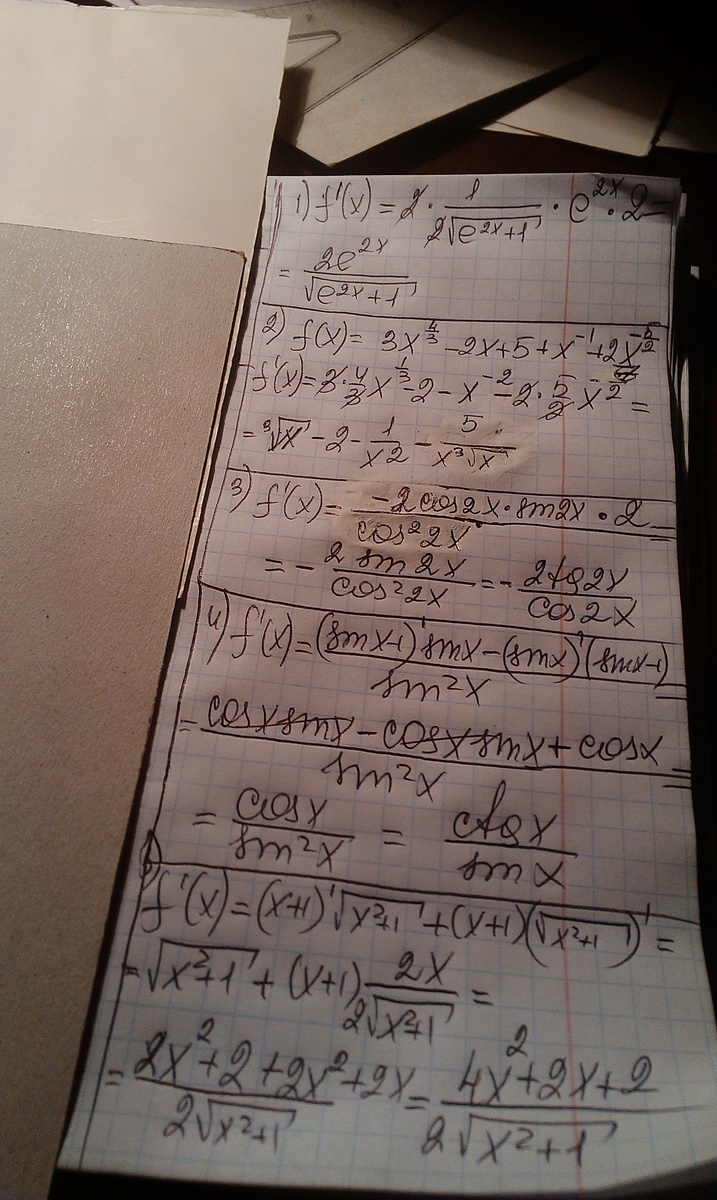 1) f'(x) = 2 · 1/(2√(e^(2x)+1)) · e^(2x) · 2 =
= 2e^(2x)/√(e^(2x)+1)
2) f(x) = 3x^(4/3) - 2x + 5 + x^(-1) + 2x^(-5/2)
f'(x) = 3·4/3 x^(1/3) - 2 - x^(-2) - 2·5/2 x^(-7/2) =
= ³√x - 2 - 1/x² - 5/(x³√x)
3) f'(x) = (-2cos2x · sin2x · 2)/(cos²2x) =
= - 2 sin 2x/cos²2x = - 2tg2x/cos2x
4) f'(x) = ((sinx-1)' sinx - (sinx)' (sinx-1))/sin²x =
= (cosx sinx - cosx sinx + cosx)/sin²x =
= cosx/sin²x = ctgx/sinx
f'(x) = (x+1)' √(x²+1) + (x+1)(√(x²+1))' =
= √(x²+1) + (x+1) 2x/(2√(x²+1)) =
= (2x²+2+2x²+2x)/(2√(x²+1)) = (4x²+2x+2)/(2√(x²+1))